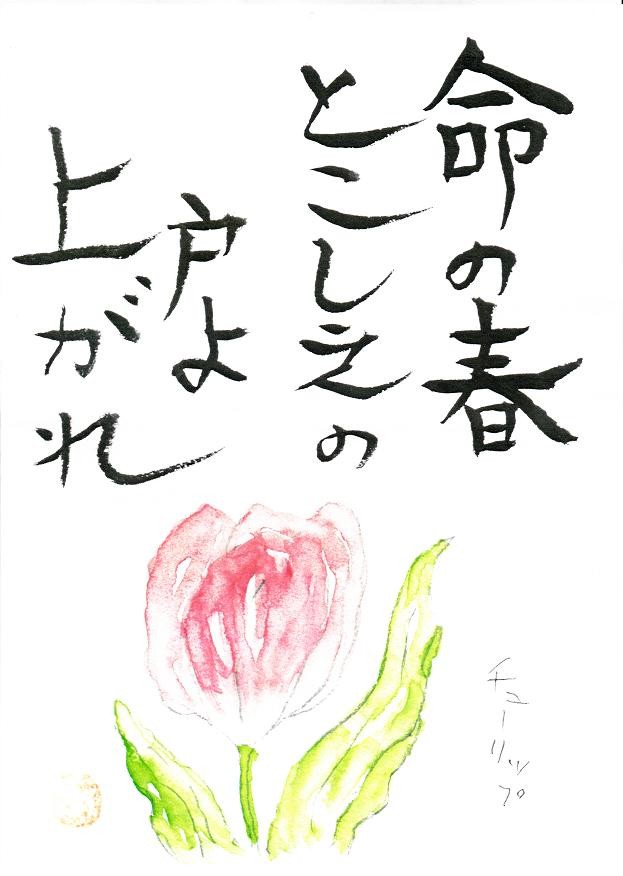 命の春
とこしえの
戸よ
上がれ
チューリップ